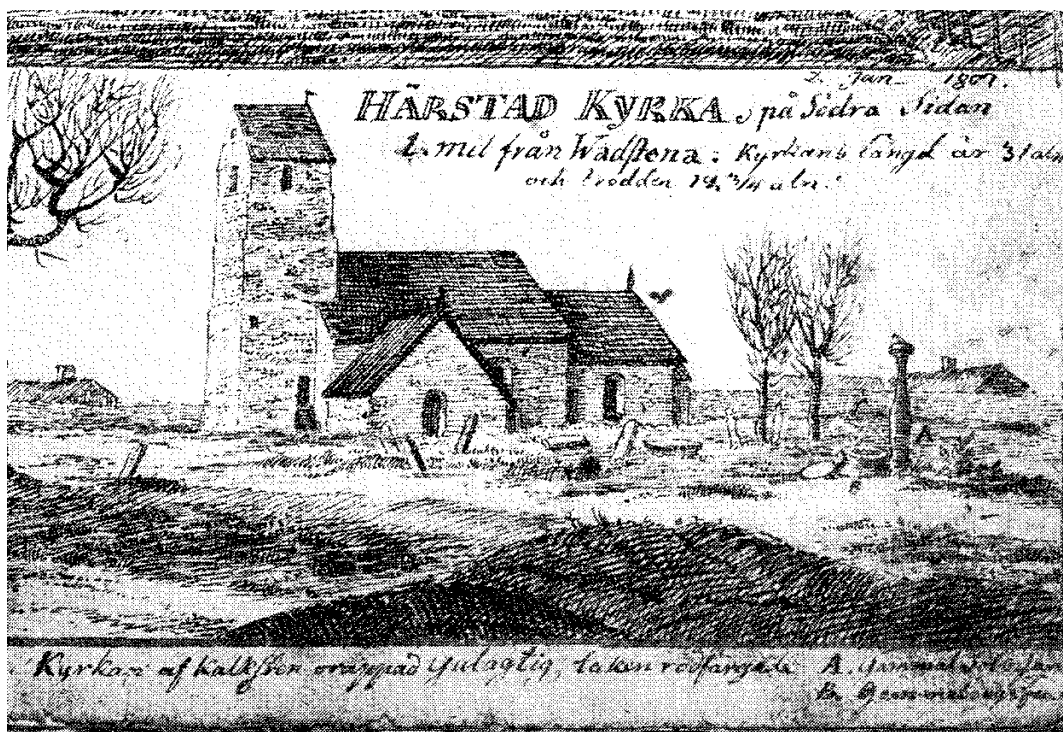 2. Jan 1807.
HÄRSTAD KYRKA, på Södra Sidan
1. mil från Wadstena: Kyrkans längd är 31 aln
och bredden 14, 3/4 aln.
Kyrkan af Kalksten orappad gulagtig, taken rödfärgade A. Gammal
B. Gammal
A
B